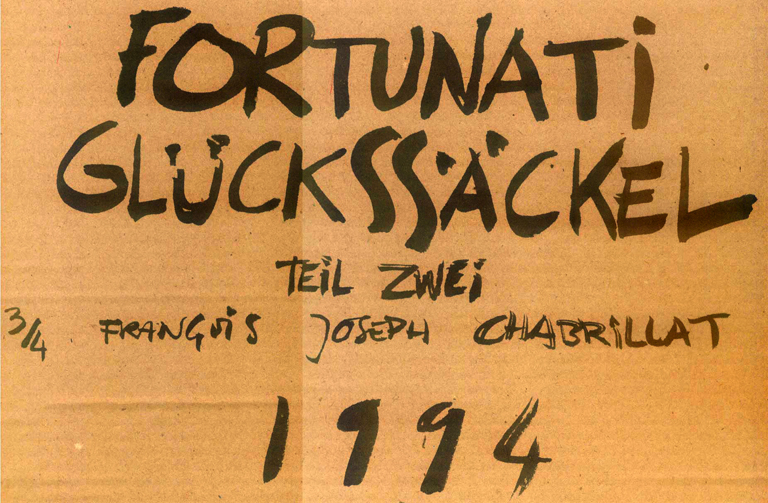 FORTUNATI
GLÜCKSSÄCKEL
TEiL ZWEi
3/4 FRANÇOiS JOSEPH CHABRiLLAT
1994